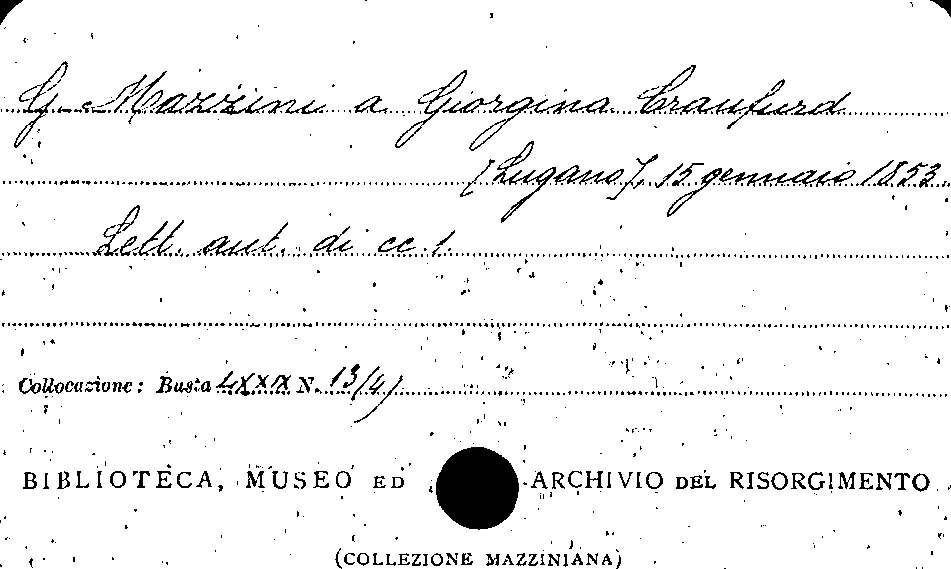 G. Mazzini a Giorgina Craufurd
[Lugano], 15 gennaio 1853.
Lett. aut. di cc. 1.
Collocazione: Busta LXXIX N. 13/4)
BIBLIOTECA, MUSEO ED ARCHIVIO DEL RISORGIMENTO
(COLLEZIONE MAZZINIANA)